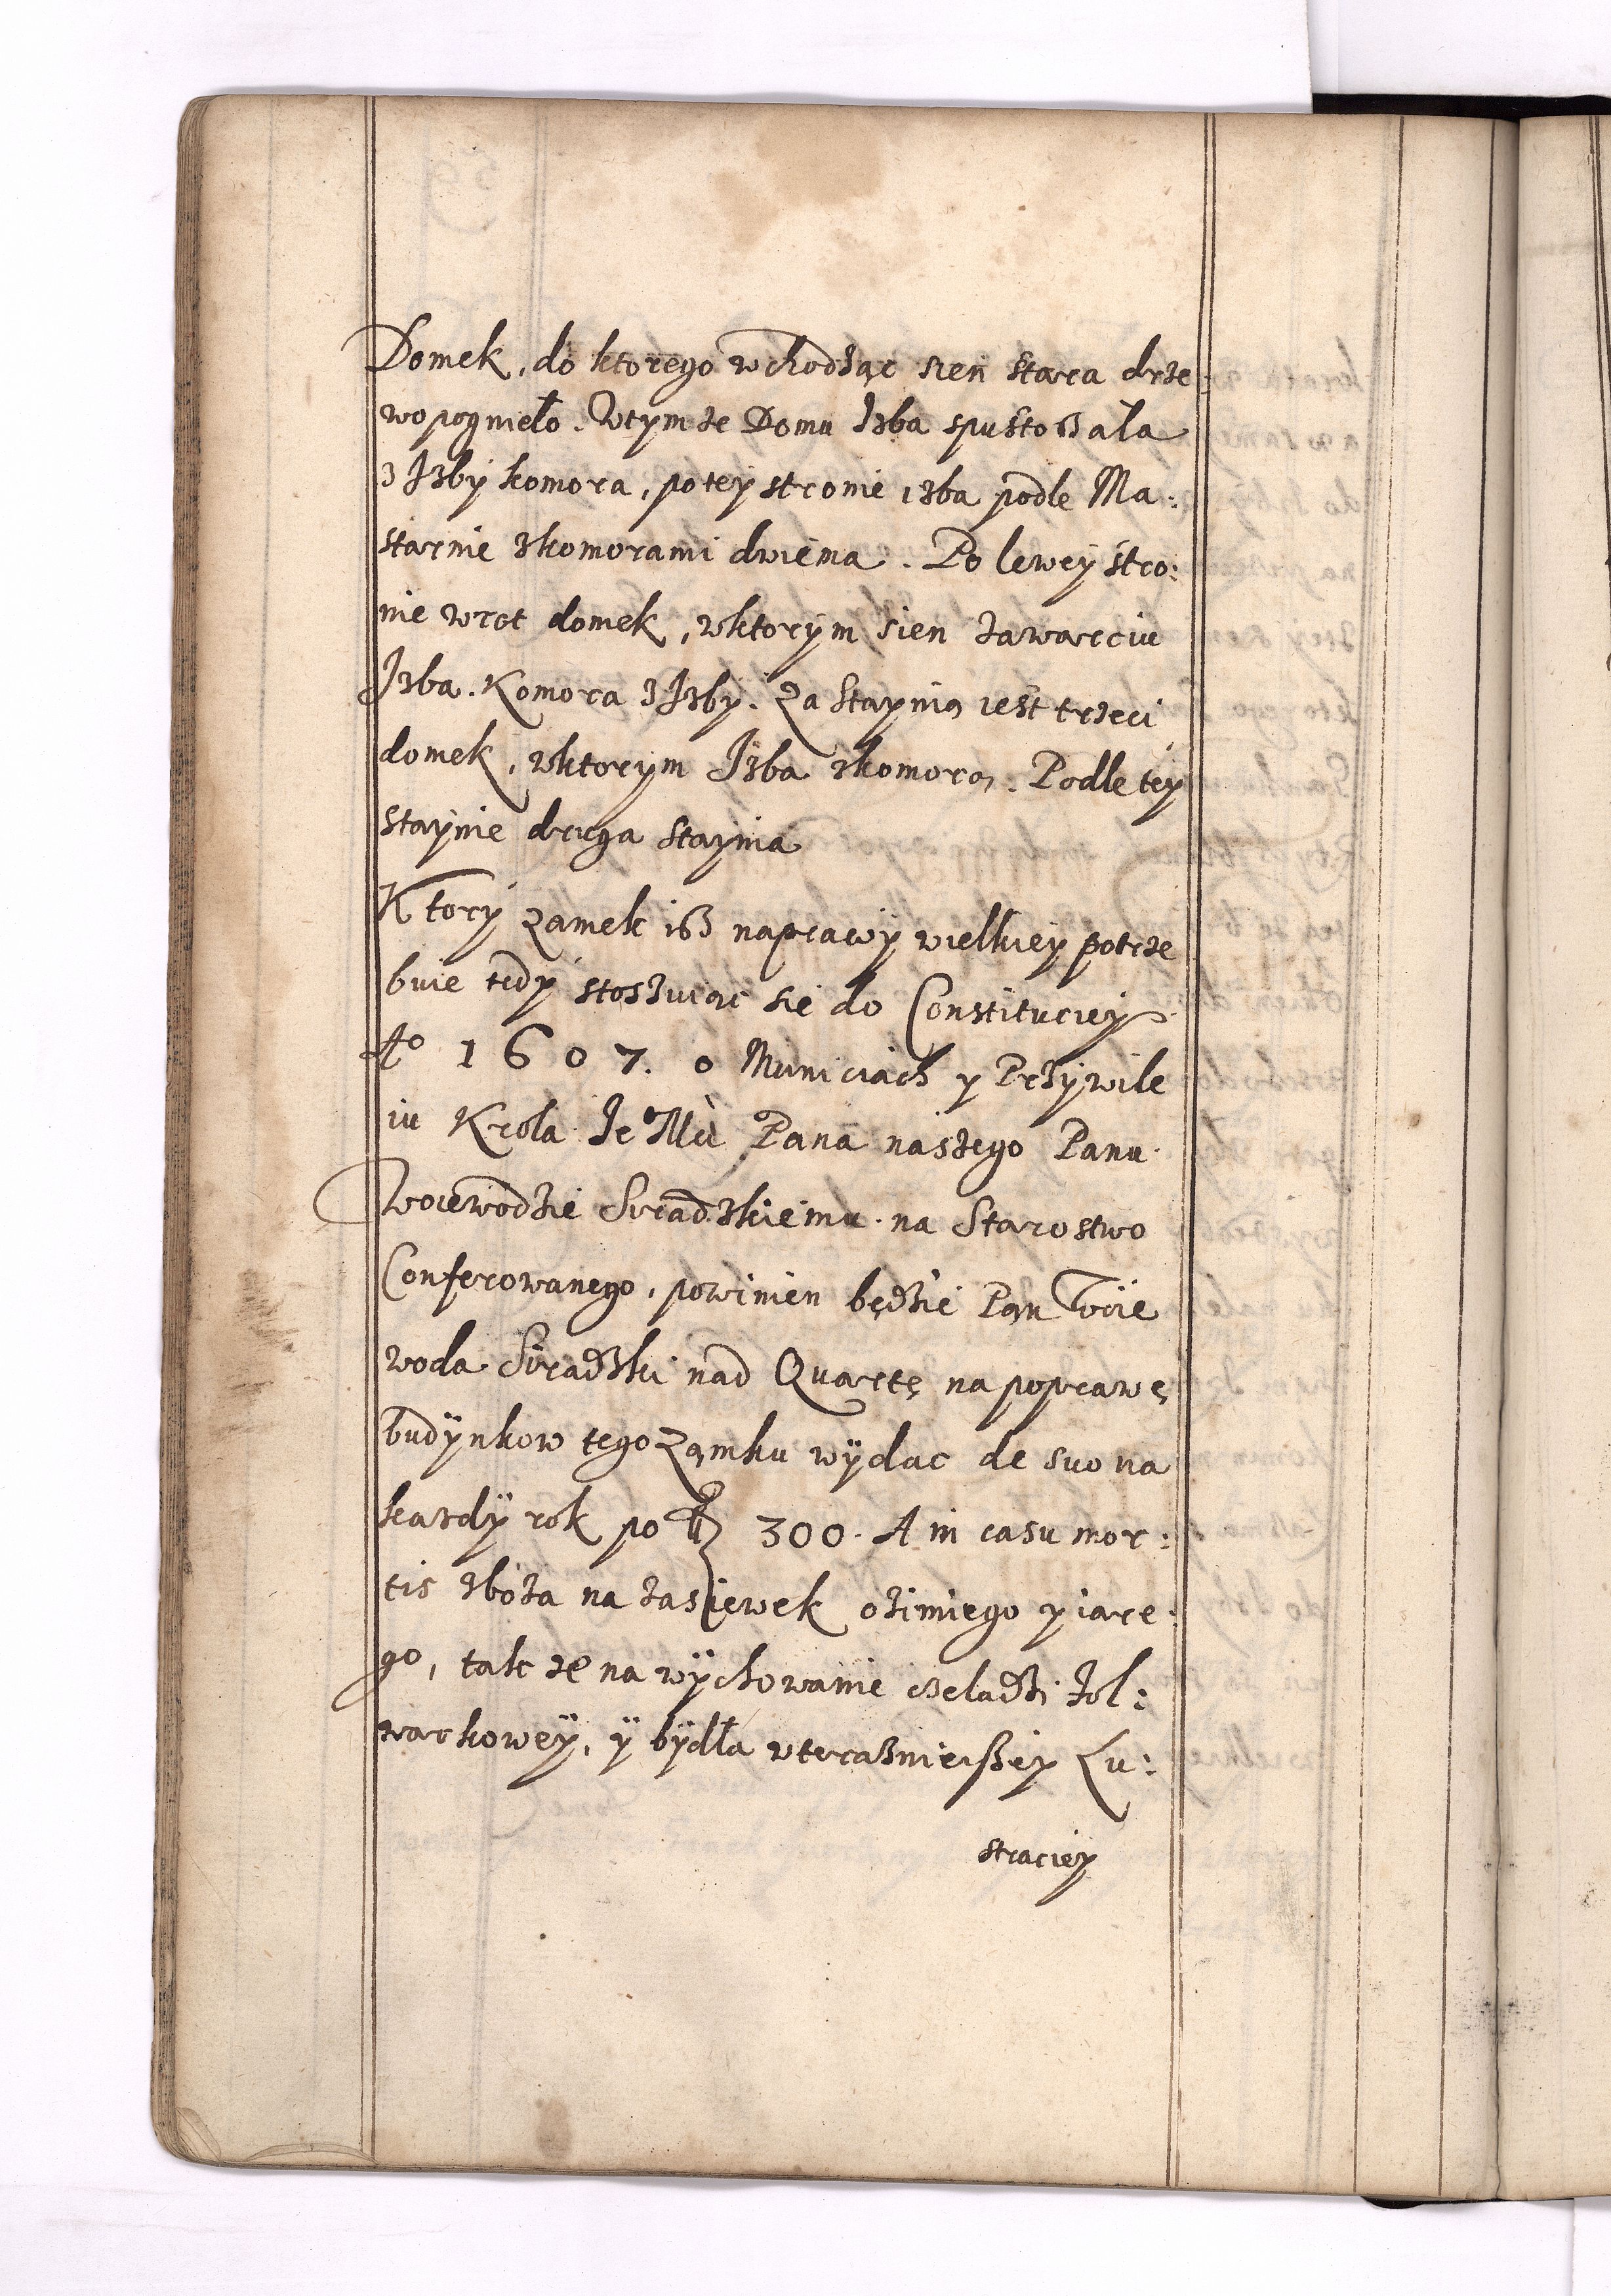 Domek, do ktorego wchodząc sien stara drze
wo pognieło. Wtymze Domu Izba spustoszała
z Izby komora, po tey stronie izba podle Ma:
starnie zkomorami dwiema. Po lewey stro:
nie wrot domek, wktorym sien zawarciu
Izba. Komora z Izby. Za staynią iest trzeci
domek, wktorym Izba zkomorą. Podle tey
staynie druga staynia
Ktory Zamek isz naprawy wielkiey potrze
buie tedy stoszuiąc się do Constituciey
Ao 1607. o Municiach y Przywile
iu Krola Je Mci Pana naszego Panu
Woiewodzie Siradzkiemu na Starostwo
Conferowanego, powinien będzie Pan Woie
woda Siradzki nad Quartę na poprawę
budynkow tego Zamku wydac de suo na
kazdy rok po fl 300. A in casu mor:
tis zboza na zasiewek ozimiego y iare
go, tak ze na wychowanie czeladzi fol:
warkowey, y bydła wterasznieiszey Lu:
straciey